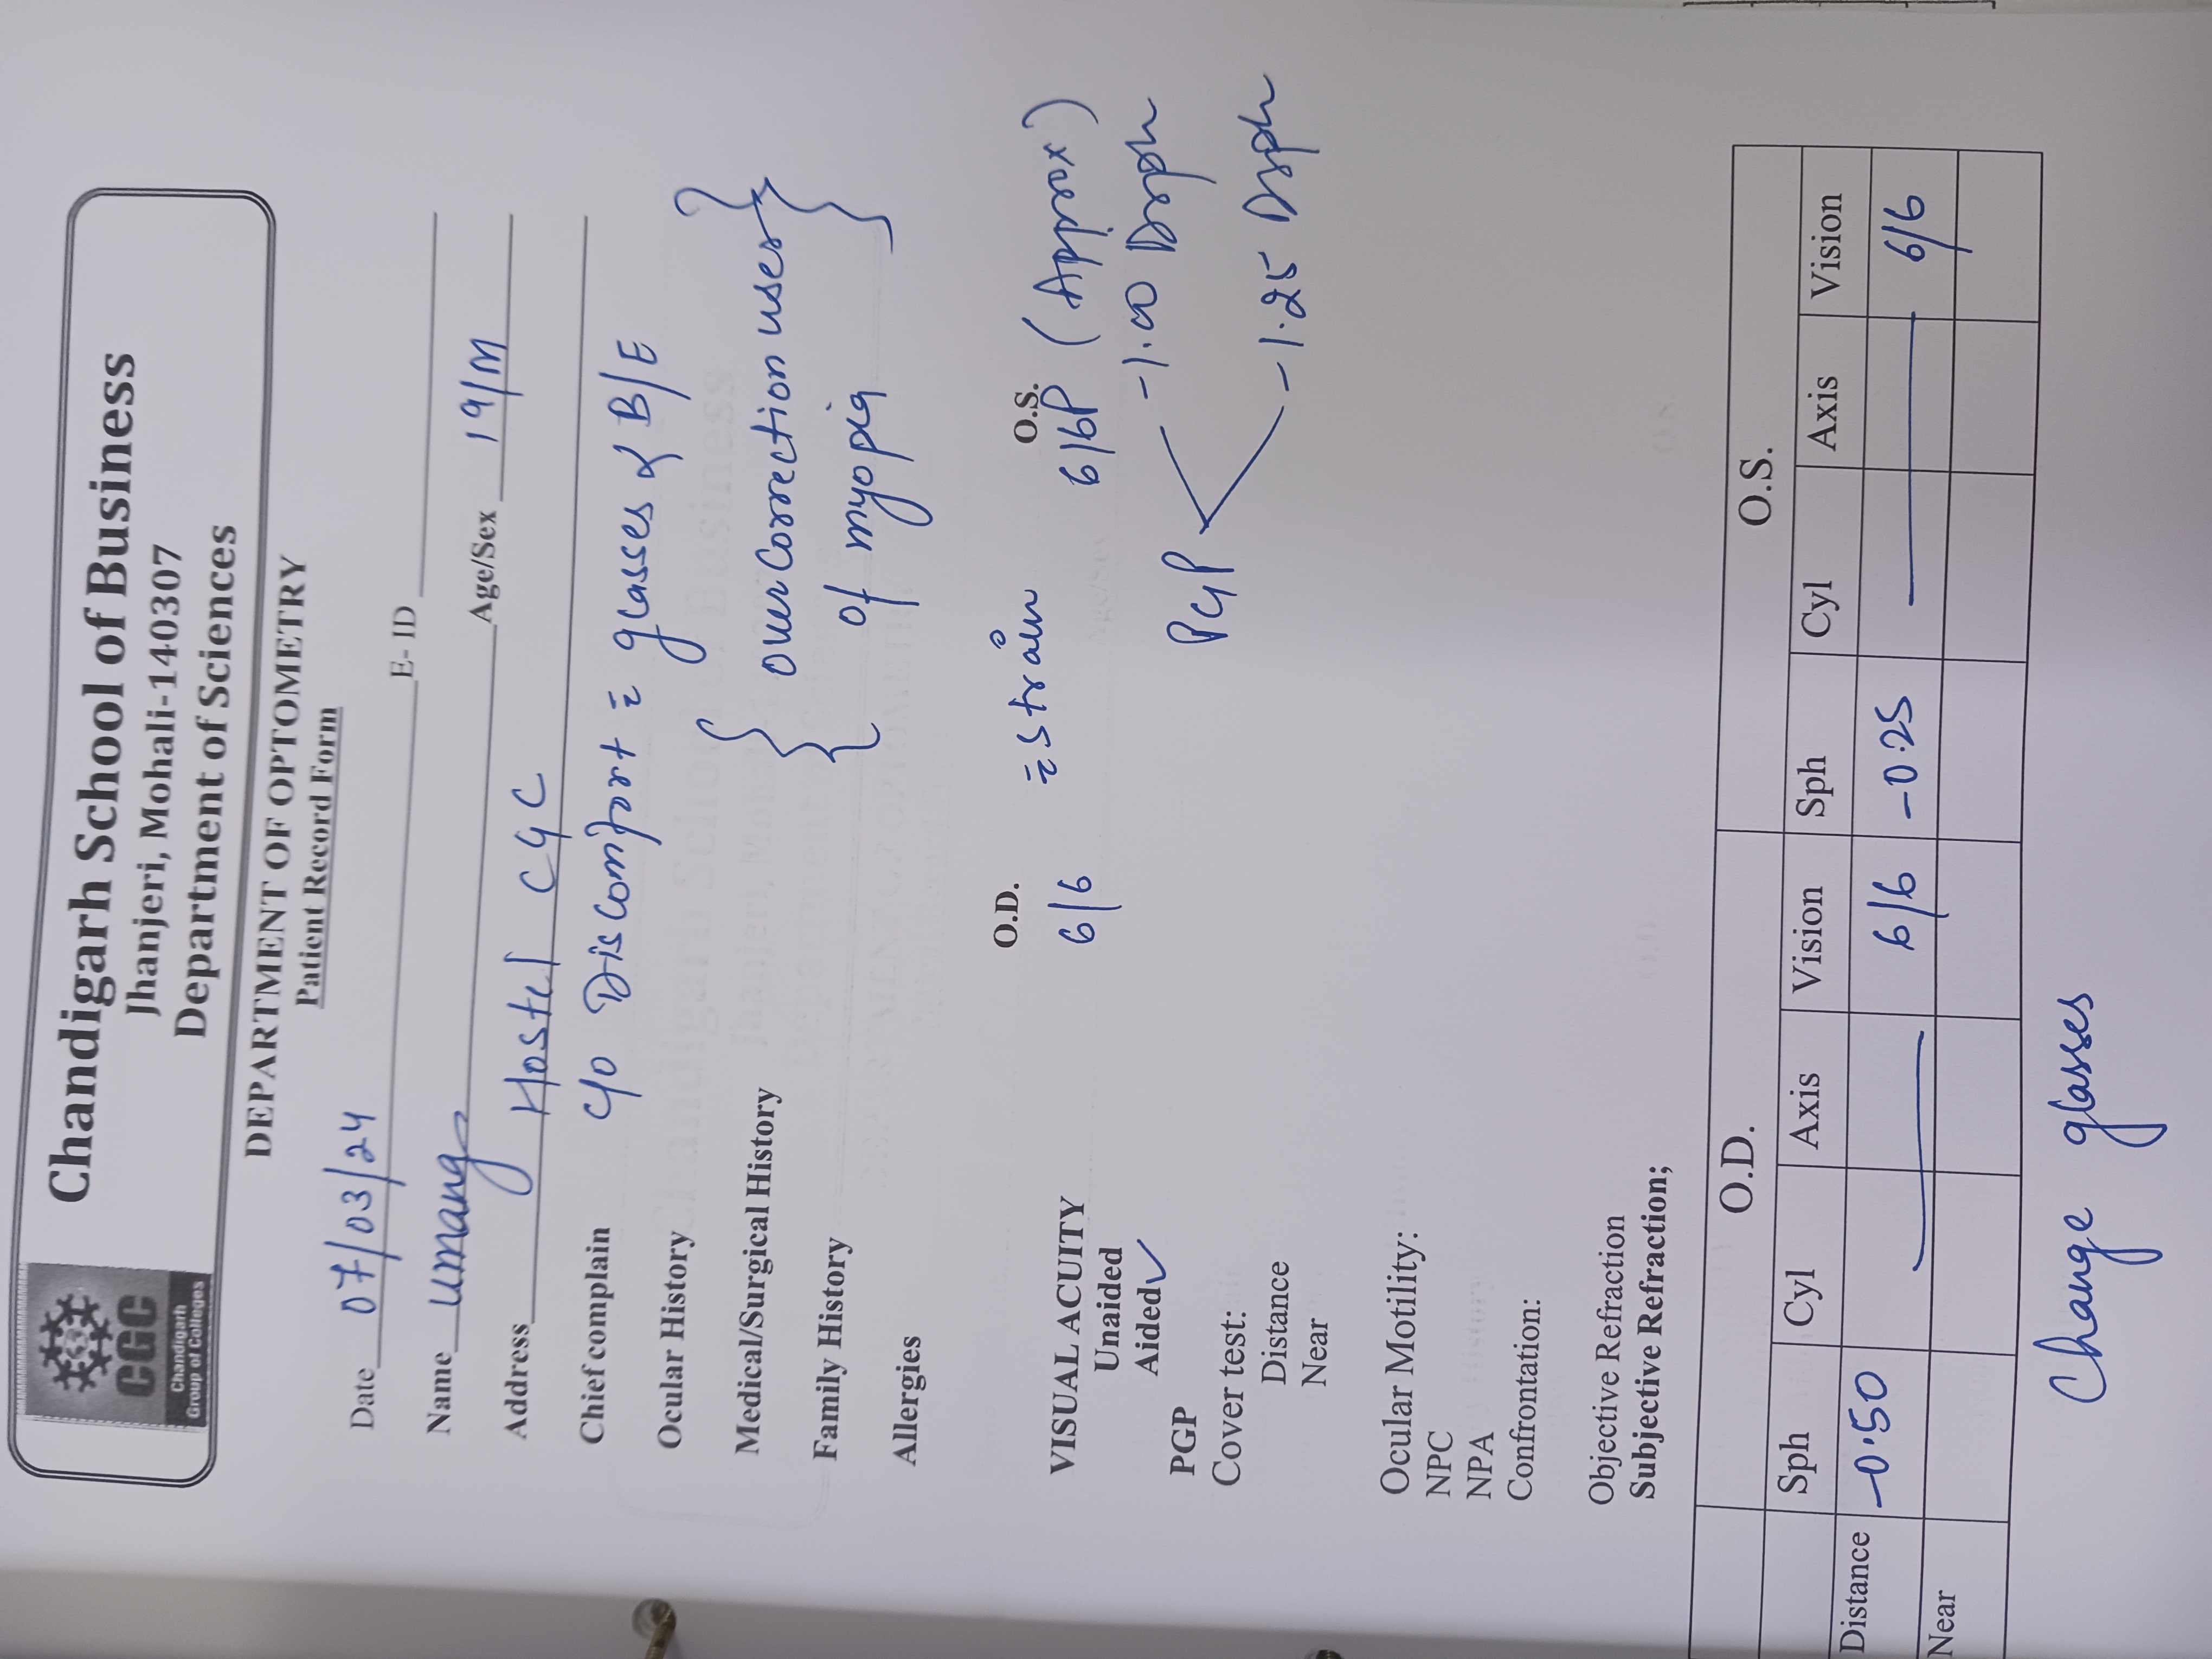 CGC
Chandigarh
Group of Colleges
Chandigarh School of Business
Jhanjeri, Mohali-140307
Department of Sciences
DEPARTMENT OF OPTOMETRY
Patient Record Form
Date 07/03/24 E- ID
Name Umang Age/Sex 19/M
Address Hostel CGC
Chief complain c/o Discomfort c̄ glasses B/E
Ocular History
Medical/Surgical History over correction uses
Family History of myopia
Allergies
O.D. c̄ strain O.S.
VISUAL ACUITY 6/6 6/6P (Approx)
Unaided
Aided✓ -1.00 Dsph
PGP PGP
Cover test:
Distance -1.25 Dsph
Near
Ocular Motility:
NPC
NPA
Confrontation:
Objective Refraction
Subjective Refraction;
O.D. O.S.
Sph Cyl Axis Vision Sph Cyl Axis Vision
Distance -0.50 6/6 -0.25 6/6
Near
Change glasses